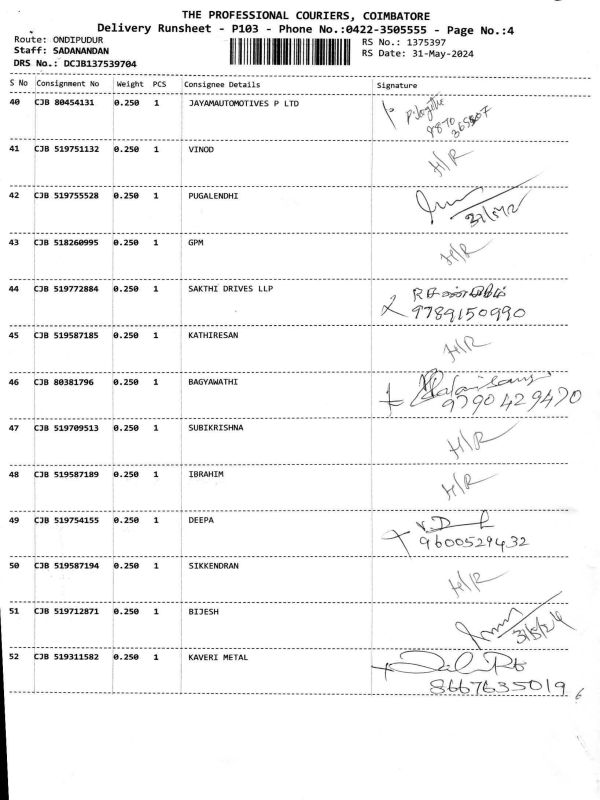 THE PROFESSIONAL COURIERS, COIMBATORE
Delivery Runsheet - P103 - Phone No.:0422-3505555 - Page No.:4
Route: ONDIPUDUR
RS No.: 1375397
Staff: SADANANDAN
RS Date: 31-May-2024
DRS No.: DCJB137539704
S No Consignment No Weight PCS Consignee Details Signature
40 CJB 80454131 0.250 1 JAYAMAUTOMOTIVES P LTD
41 CJB 519751132 0.250 1 VINOD H/R
42 CJB 519755528 0.250 1 PUGALENDHI
43 CJB 518260995 0.250 1 GPM H/R
44 CJB 519772884 0.250 1 SAKTHI DRIVES LLP
9789150990
45 CJB 519587185 0.250 1 KATHIRESAN H/R
46 CJB 80381796 0.250 1 BAGYAWATHI
9790429470
47 CJB 519709513 0.250 1 SUBIKRISHNA H/R
48 CJB 519587189 0.250 1 IBRAHIM H/R
49 CJB 519754155 0.250 1 DEEPA
9600529432
50 CJB 519587194 0.250 1 SIKKENDRAN H/R
51 CJB 519712871 0.250 1 BIJESH
31/5/24
52 CJB 519311582 0.250 1 KAVERI METAL
8667635019
6